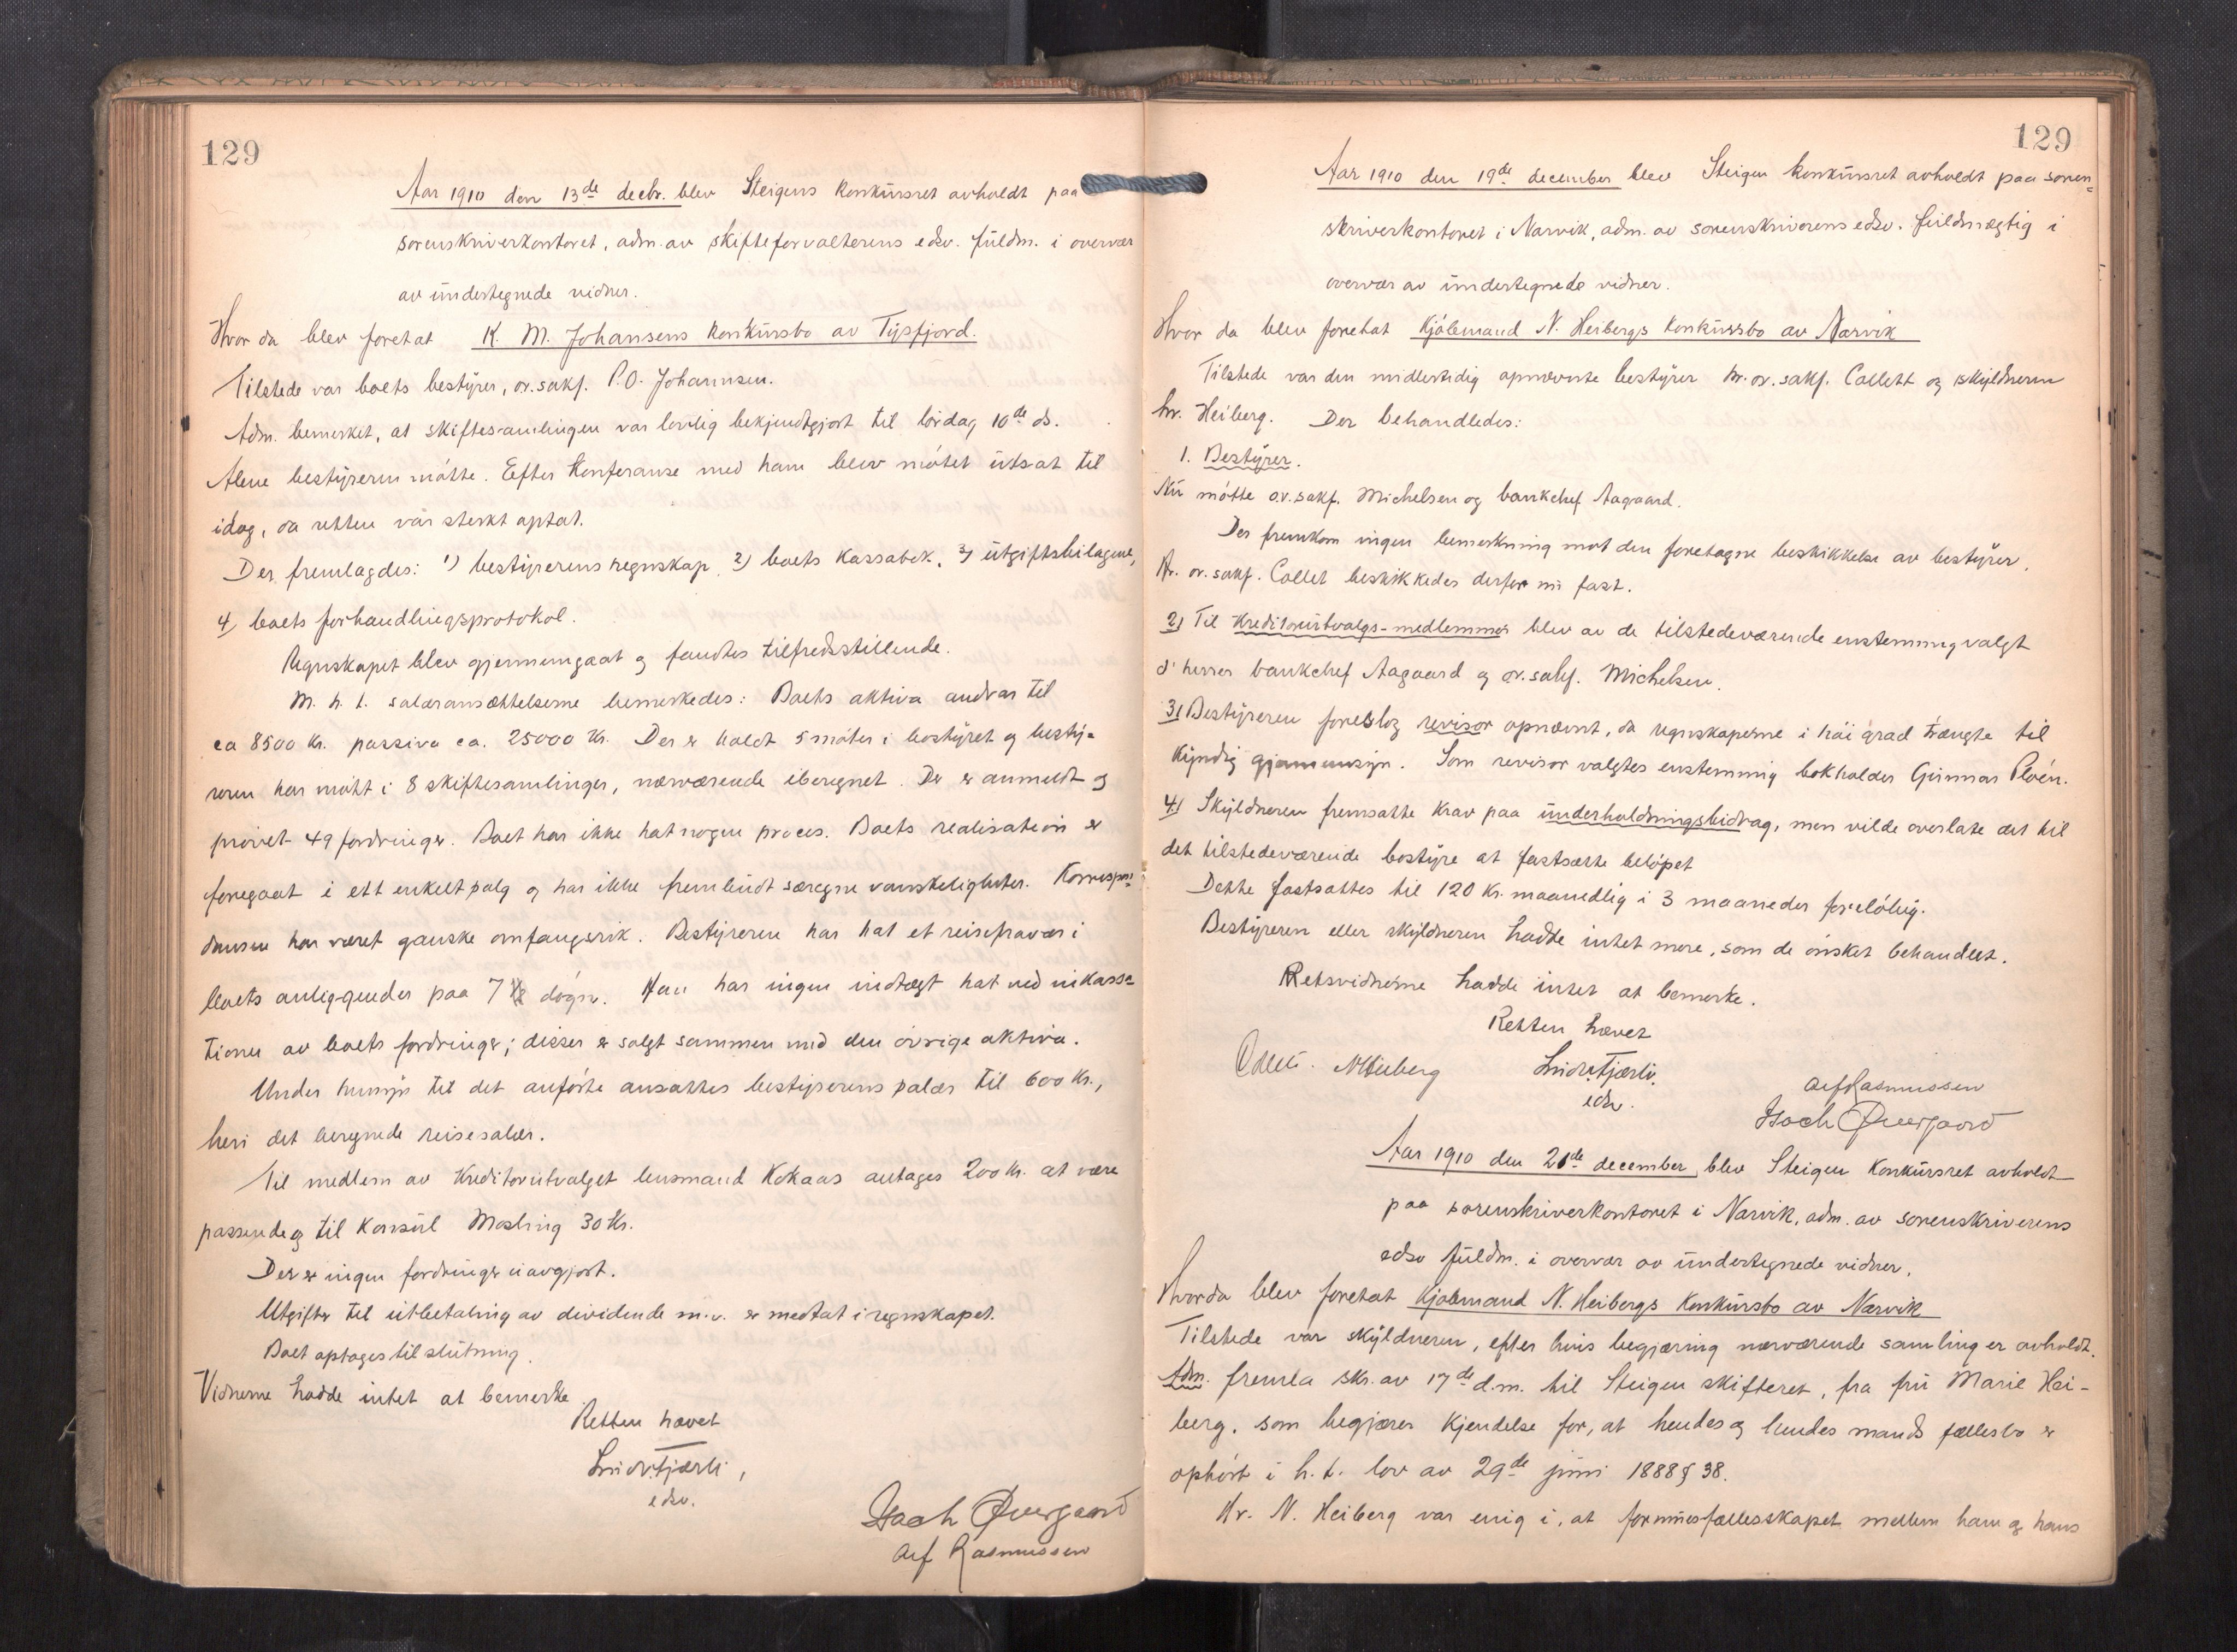 129
Aar 1910 den 13de decbr. blev Steigens konkursret avholdt paa
sorenskriverkontoret, adm. av skifteforvalterens edsv. fuldm. i overvær
av undertegnede vidner.
Hvor da blev foretat K. M. Johansens konkursbo av Tysfjord.
Tilstede var boets bestyrer, ov. sakf. P. O. Johannsen.
Adm. bemerket, at skiftesamlingen var lovlig bekjendtgjort til lördag 10de ds.
Alene bestyreren mötte. Efter konferanse med ham blev mötet utsat til
idag, da retten var sterkt optat.
Der fremlagdes: 1) bestyrerens regnskap, 2) boets kassabok, 3) utgiftsbilagene,
4) boets forhandlingsprotokol.
Regnskapet blev gjennemgaat og fandtes tilfredsstillende.
M. h. t. salæransættelserne bemerkedes: Boets aktiva andrar til
ca 8500 kr. passiva ca. 25000 kr. Der er holdt 5 möter i bostyret og besty-
reren har mött i 8 skiftesamlinger, nærværende iberegnet. Der er anmeldt og
prövet 49 fordringer. Boet har ikke hat nogen proces. Boets realisation er
foregaat i ett enkelt salg og har ikke frembudt særegne vanskeligheter. Korrespon-
dansen har været ganske omfangsrik. Bestyreren har hat et reisefravær i
boets anliggender paa 7 1/2 dögn. Han har ingen indtægt hat ved inkassa-
tionen av boets fordringer; disser er solgt sammen med den övrige aktiva.
Under hensyn til det anförte ansattes bestyrerens salær til 600 kr.,
heri det beregnede reisesalær.
Til medlem av kreditorutvalget lensmand Kokaas antages 200 kr. at være
passende og til konsul Mosling 30 kr.
Der er ingen fordringer uavgjort.
Utgifter til utbetaling av dividende m.v. er medtat i regnskapet.
Boet optages til slutning.
Vidnerne hadde intet at bemerke.
Retten hævet
edsv.
Isach Qvergaard
Alf Rasmussen
129
Aar 1910 den 19de december blev Steigen konkursret avholdt paa soren-
skriverkontoret i Narvik, adm. av sorenskriverens edsv. fuldmægtig i
overvær av undertegnede vidner.
Hvor da blev foretat Kjöbmand N. Heibergs konkursbo av Narvik
Tilstede var den midlertidig opnævnte bestyrer hr. ov. sakf. Collett og skyldneren
hr. Heiberg. Der behandledes:
1. Bestyrer.
Nu mötte o.v. sakf. Michelsen og bankchef Aagaard.
Der fremkom ingen bemerkning mot den foretagne beskikkelse av bestyrer.
Hr. ov. sakf. Collet beskikkedes derfor nu fast.
2) Til kreditorutvalgs-medlemmer blev av de tilstedeværende enstemmig valgt
d' herrer bankchef Aagaard og ov. sakf. Michelsen.
3) Bestyreren foreslog revisor opnævnt, da regnskaperne i höi grad trængte til
kyndig gjennemsyn. Som revisor valgtes enstemmig bokholder Gunnar Ploén.
4) Skyldneren fremsatte krav paa underholdningsbidrag, men vilde overlate det til
det tilstedeværende bostyre at fastsætte belöpet
Dette fastsattes til 120 kr. maanedlig i 3 maaneder forelöbig.
Bestyreren eller skyldneren hadde intet mere, som de önsket behandlet.
Retsvidnerne hadde intet at bemerke.
Retten hævet
Collett. NHeiberg
edsv.
Alf Rasmussen
Isach Qvergaard
Aar 1910 den 21de december, blev Steigen konkursret avholdt
paa sorenskriverkontoret i Narvik, adm. av sorenskriverens
edsv fuldm. i overvær av undertegnede vidner.
Hvor da blev foretat Kjöbmand N. Heibergs konkursbo av Narvik
Tilstede var skyldneren, efter hvis begjæring nærværende samling er avholdt.
Adm. fremla skr. av 17de d.m. til Steigen skifteret, fra fru Marie Hei-
berg, som begjærer kjendelse for, at hendes og hendes mands fællesbo er
ophört i h.t. lov av 29de juni 1888 § 38.
Hr. N. Heiberg var enig i, at formuesfællesskapet mellem ham og hans